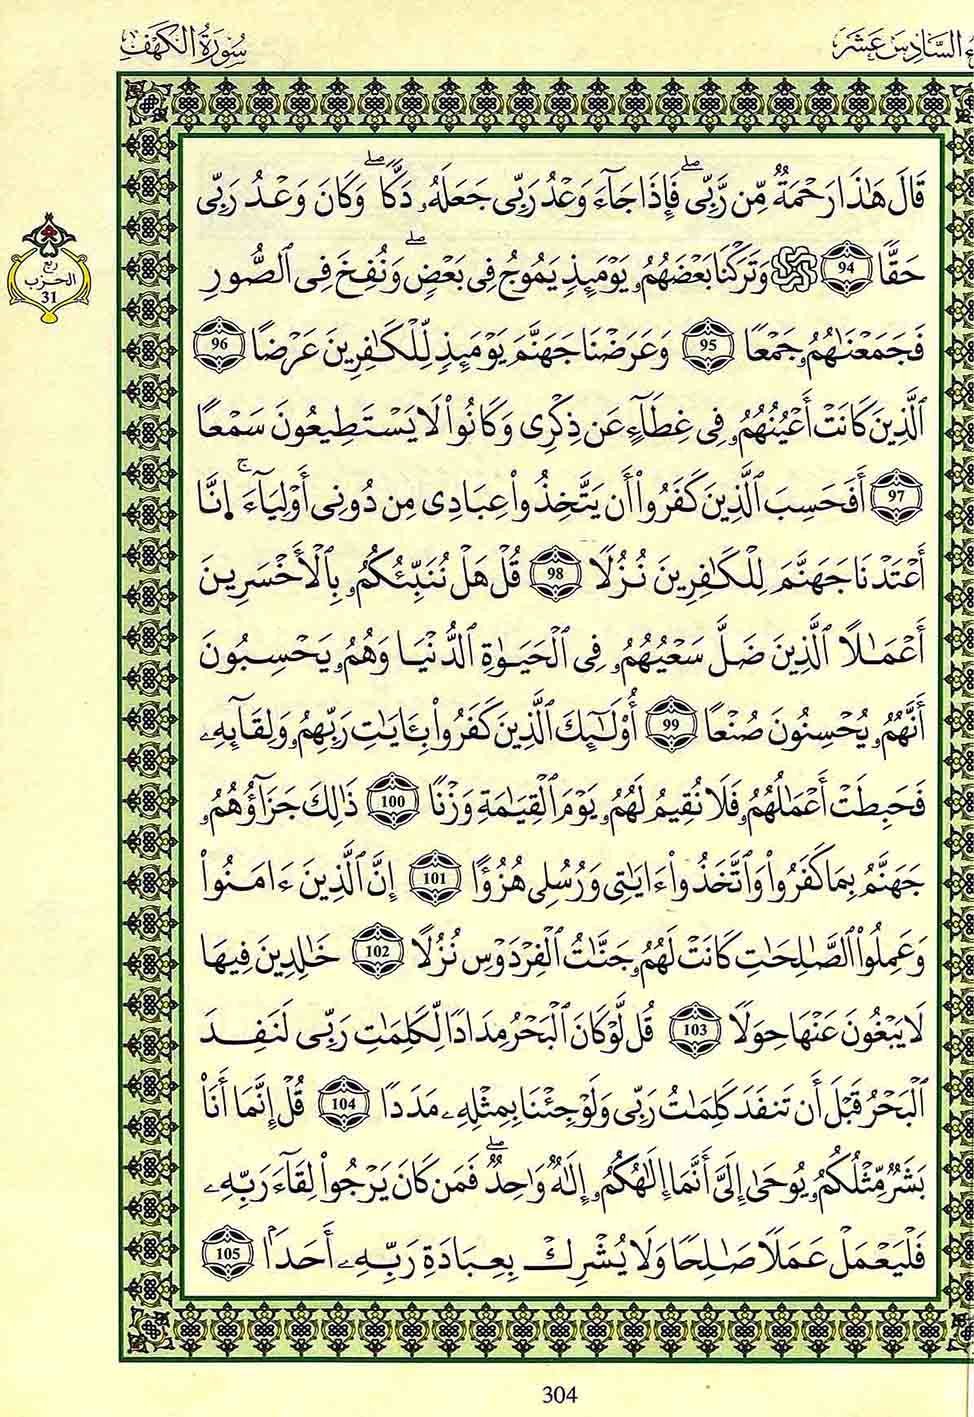 سُورَةُ الكَهْفِ
السَّادِسَ عَشَرَ
قَالَ هَٰذَا رَحْمَةٌ مِّن رَّبِّيۖ فَإِذَا جَآءَ وَعْدُ رَبِّي جَعَلَهُۥ دَكّٗاۖ وَكَانَ وَعْدُ رَبِّي
حَقّٗا 94 وَتَرَكْنَا بَعْضَهُمُۥ يَوْمَئِذٖ يَمُوجُ فِي بَعْضٖۖ وَنُفِخَ فِي ٱلصُّورِ
فَجَمَعْنَٰهُمُۥ جَمْعٗا 95 وَعَرَضْنَا جَهَنَّمَ يَوْمَئِذٖ لِّلْكَٰفِرِينَ عَرْضًا 96
ٱلَّذِينَ كَانَتْ أَعْيُنُهُمُۥ فِي غِطَآءٍ عَن ذِكْرِي وَكَانُواْ لَا يَسْتَطِيعُونَ سَمْعًا
97 أَفَحَسِبَ ٱلَّذِينَ كَفَرُواْ أَن يَتَّخِذُواْ عِبَادِي مِن دُونِي أَوْلِيَآءَۚ إِنَّا
أَعْتَدْنَا جَهَنَّمَ لِلْكَٰفِرِينَ نُزُلٗا 98 قُلْ هَلْ نُنَبِّئُكُمُۥ بِٱلْأَخْسَرِينَ
أَعْمَٰلًا ٱلَّذِينَ ضَلَّ سَعْيُهُمُۥ فِي ٱلْحَيَوٰةِ ٱلدُّنْيَا وَهُمُۥ يَحْسِبُونَ
أَنَّهُمُۥ يُحْسِنُونَ صُنْعًا 99 أُوْلَٰٓئِكَ ٱلَّذِينَ كَفَرُواْ بِـَٔايَٰتِ رَبِّهِمُۥ وَلِقَآئِهِۦ
فَحَبِطَتْ أَعْمَٰلُهُمُۥ فَلَا نُقِيمُ لَهُمُۥ يَوْمَ ٱلْقِيَٰمَةِ وَزْنٗا 100 ذَٰلِكَ جَزَآؤُهُمُۥ
جَهَنَّمُ بِمَا كَفَرُواْ وَٱتَّخَذُواْ ءَايَٰتِي وَرُسُلِي هُزُؤًا 101 إِنَّ ٱلَّذِينَ ءَامَنُواْ
وَعَمِلُواْ ٱلصَّٰلِحَٰتِ كَانَتْ لَهُمُۥ جَنَّٰتُ ٱلْفِرْدَوْسِ نُزُلًا 102 خَٰلِدِينَ فِيهَا
لَا يَبْغُونَ عَنْهَا حِوَلٗا 103 قُل لَّوْ كَانَ ٱلْبَحْرُ مِدَادٗا لِّكَلِمَٰتِ رَبِّي لَنَفِدَ
ٱلْبَحْرُ قَبْلَ أَن تَنفَدَ كَلِمَٰتُ رَبِّي وَلَوْ جِئْنَا بِمِثْلِهِۦ مَدَدٗا 104 قُلْ إِنَّمَا أَنَا۠
بَشَرٞ مِّثْلُكُمُۥ يُوحَىٰ إِلَيَّ أَنَّمَا إِلَٰهُكُمُۥ إِلَٰهٞ وَٰحِدٞۖ فَمَن كَانَ يَرْجُواْ لِقَآءَ رَبِّهِۦ
فَلْيَعْمَلْ عَمَلٗا صَٰلِحٗا وَلَا يُشْرِكْ بِعِبَادَةِ رَبِّهِۦ أَحَدَۢا 105
ربع
الحزب
31
304